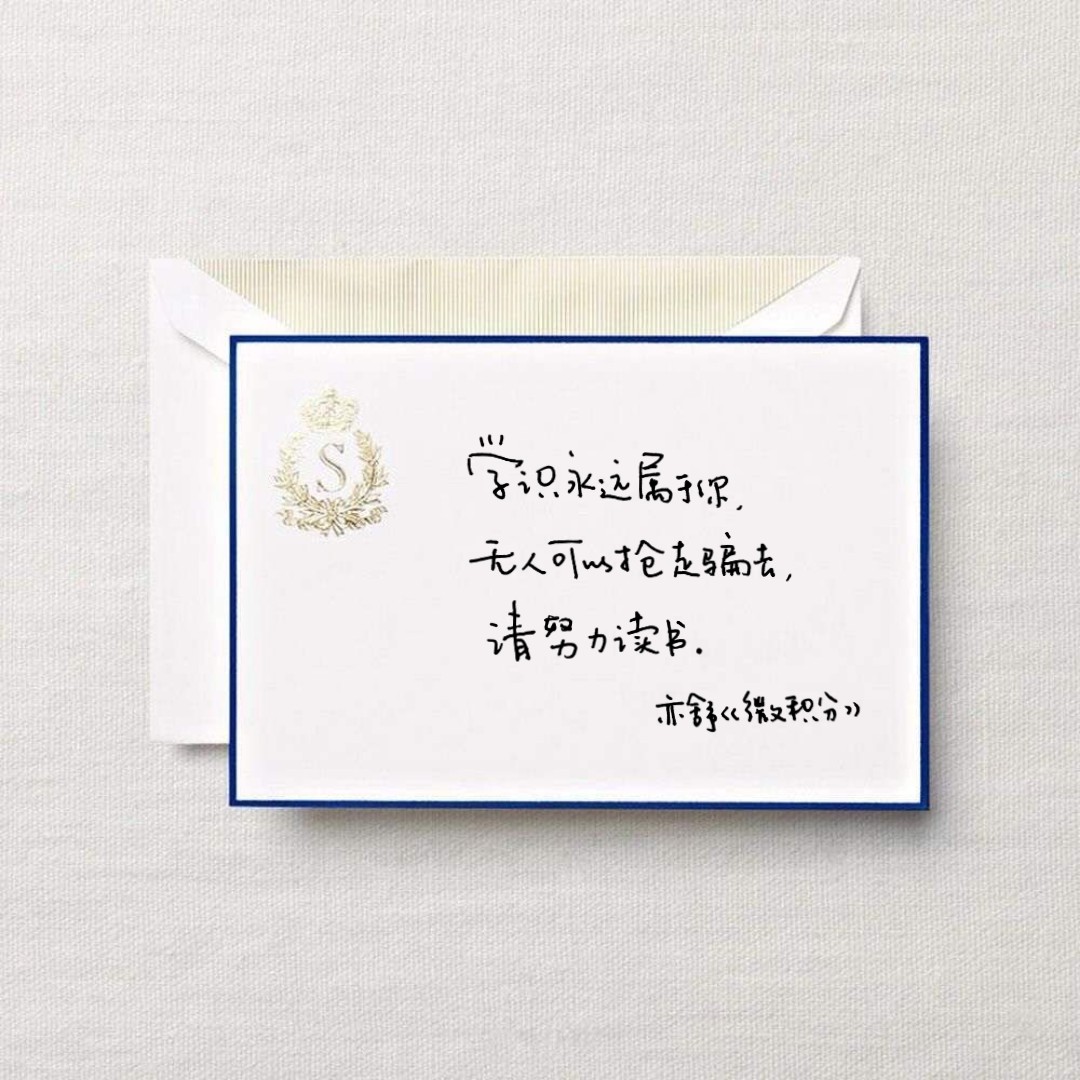 S
学识永远属于你,
无人可以抢走骗去,
请努力读书.
亦舒《微积分》